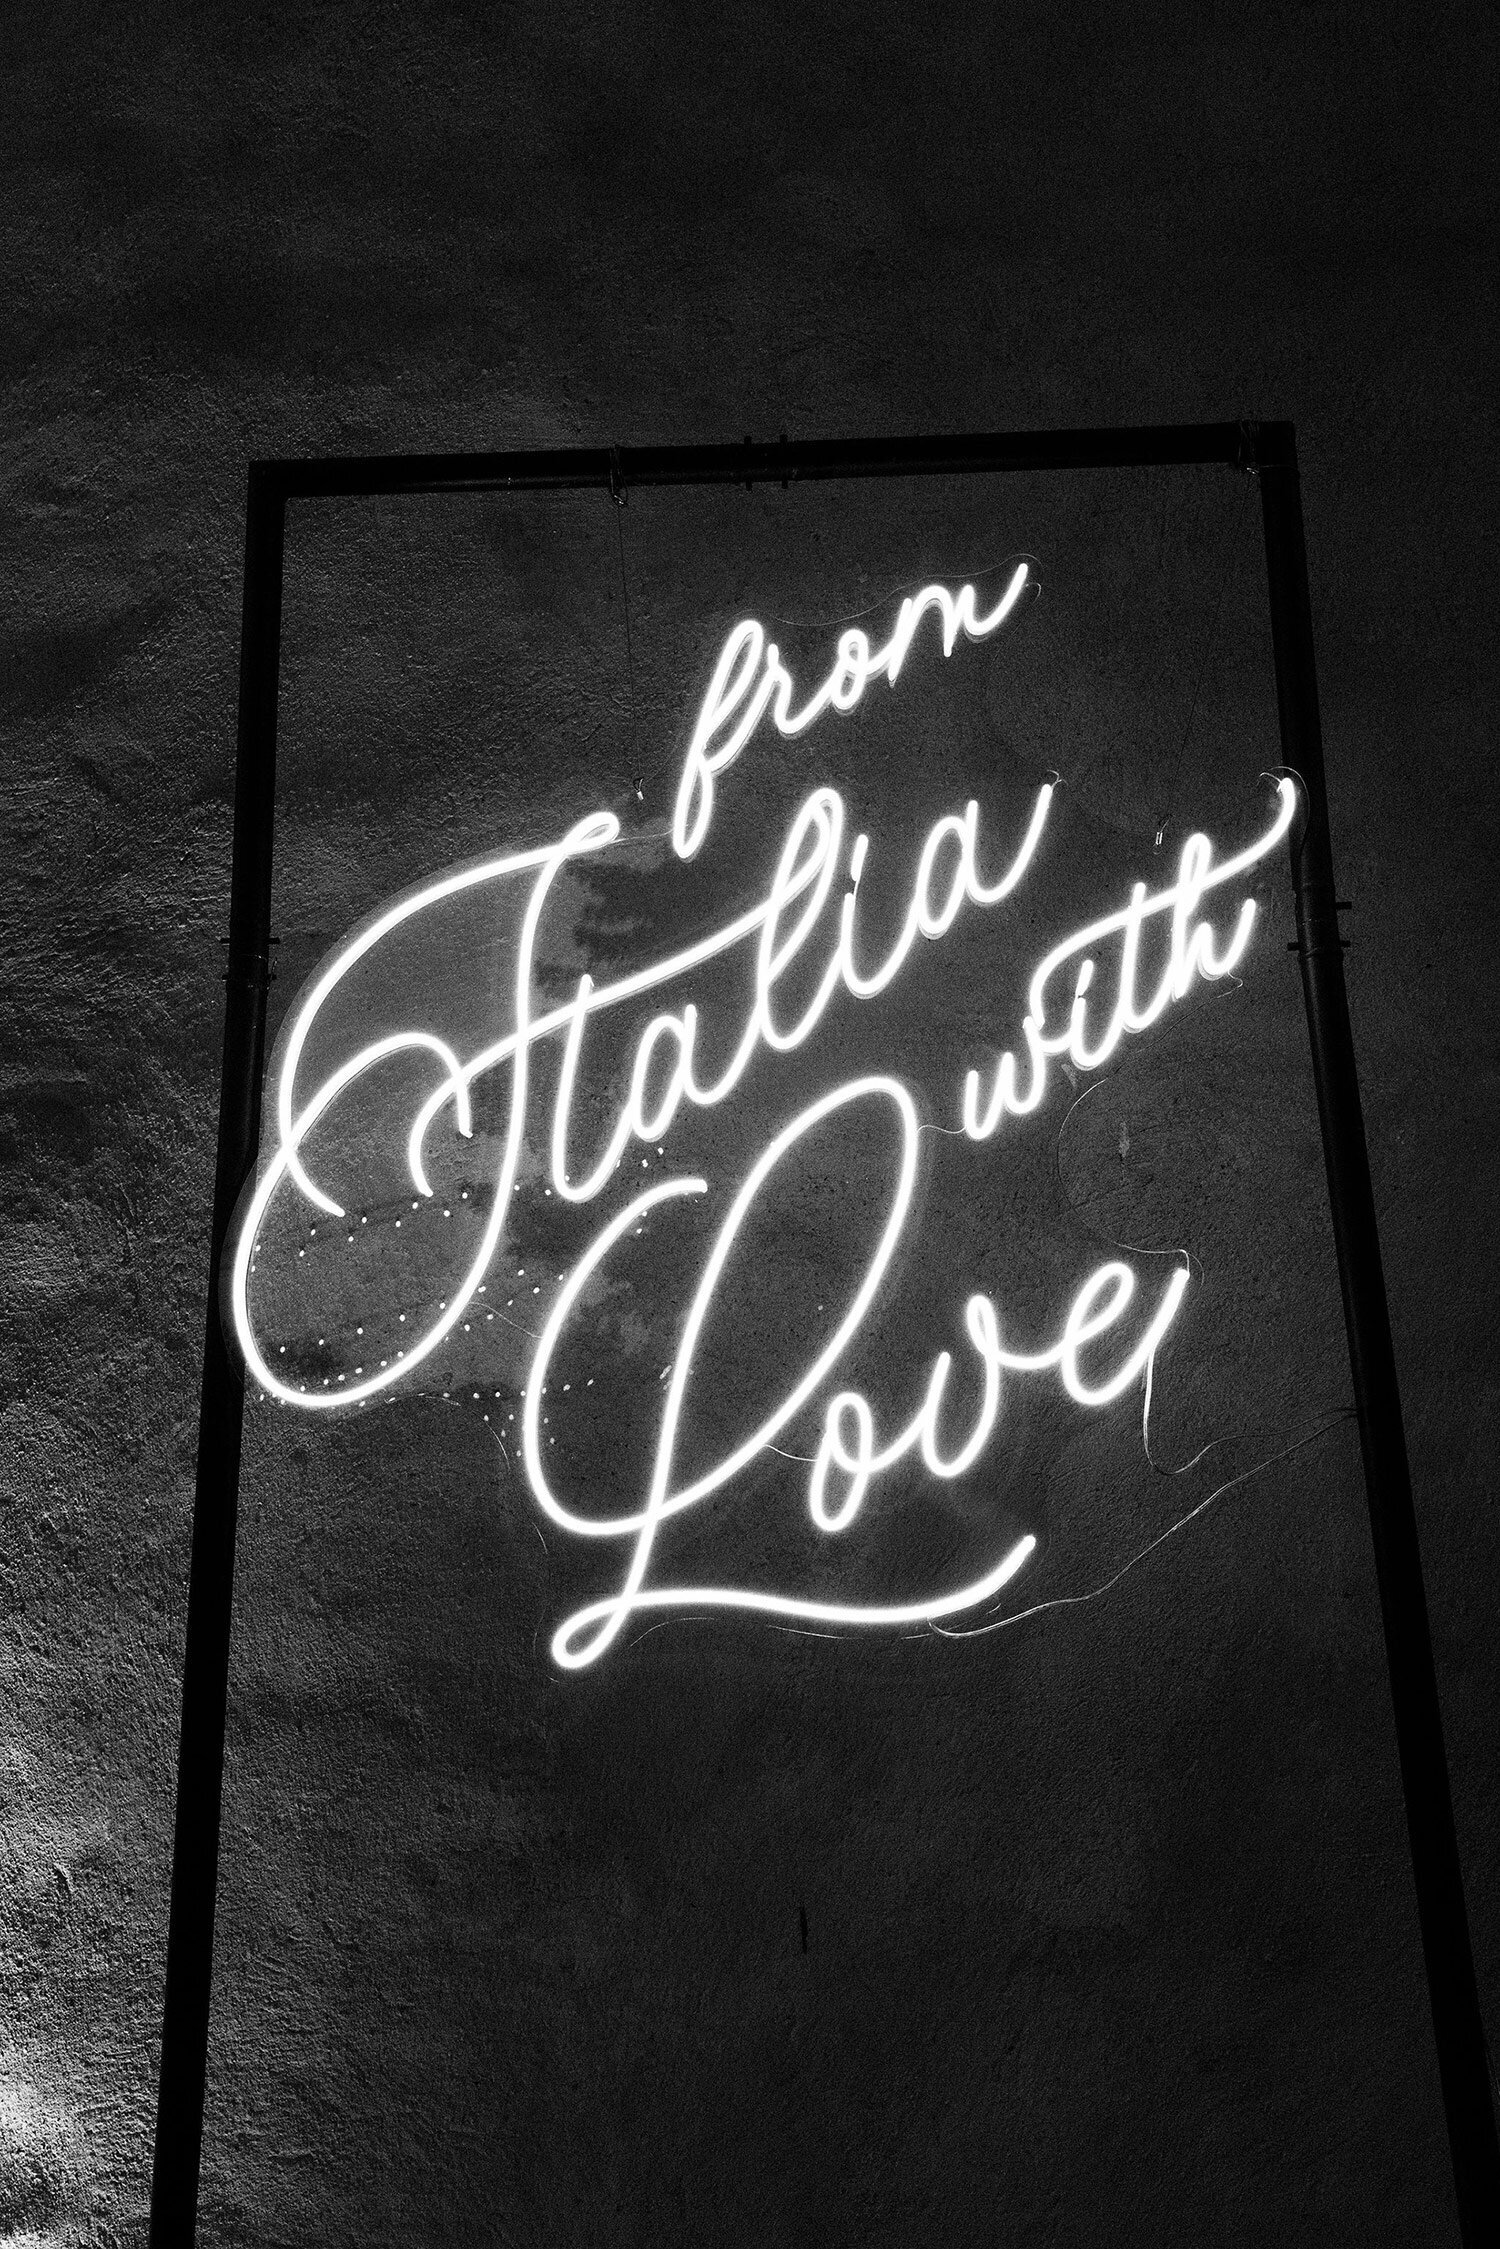 from
Italia
with
Love